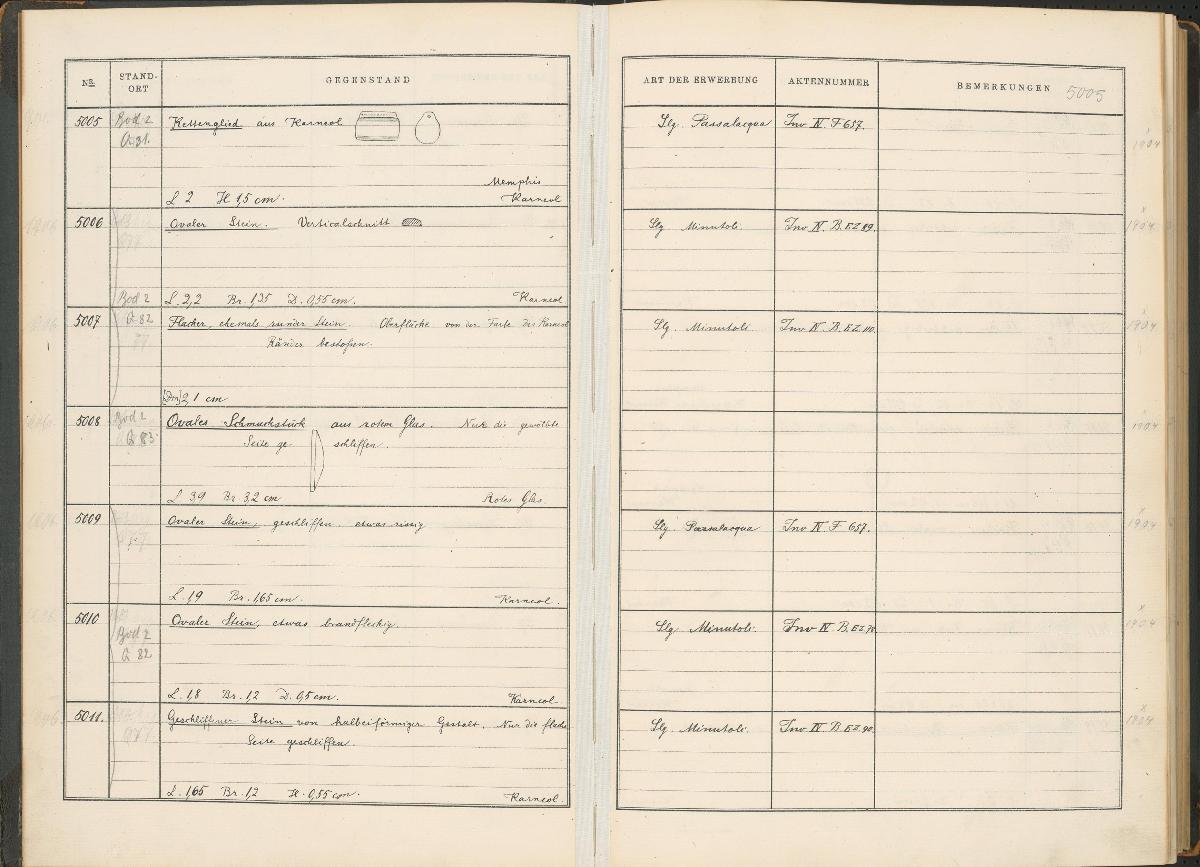 NR. STAND-ORT GEGENSTAND ART DER ERWERBUNG AKTENNUMMER BEMERKUNGEN 5005
5005 Bod 2 Kettenglied aus Karneol Slg. Passalacqua Inv IV. F 657.
Q 31.
Memphis
L 2 H 1,5 cm. Karneol
5006 Ovaler Stein. Verticalschnitt Slg Minutoli. Inv IV. B. EZ 89.
Bod 2 L. 2,2 Br. 1,35 D. 0,55 cm. Karneol
5007 Q 82 Flacher, ehemals runder Stein. Oberfläche von der Farbe des Karneol Slg. Minutoli Inv IV B. EZ 110.
Ränder bestoßen.
[Dm] 2,1 cm
5008 Bod 2 Ovales Schmuckstück aus rotem Glas. Nur die gewölbte
Q 83 Seite ge schliffen.
L 3,9 Br. 3,2 cm Rotes Glas.
5009 Ovaler Stein, geschliffen. etwas rissig Slg. Passalacqua Inv IV F 657.
L. 1,9 Br. 1,65 cm. Karneol.
5010 Ovaler Stein, etwas brandfleckig. Slg. Minutoli. Inv IV B. EZ
Bod 2
Q 82
L. 1,8 Br. 1,2 D. 0,5 cm. Karneol
5011. Geschliffner Stein von halbeiförmiger Gestalt. Nur die flache Slg. Minutoli. Inv IV B. EZ 90.
Seite geschliffen.
L. 1,65 Br. 1,2 H. 0,55 cm. Karneol.
1904
1904
1904
1904
1904
1904
1904